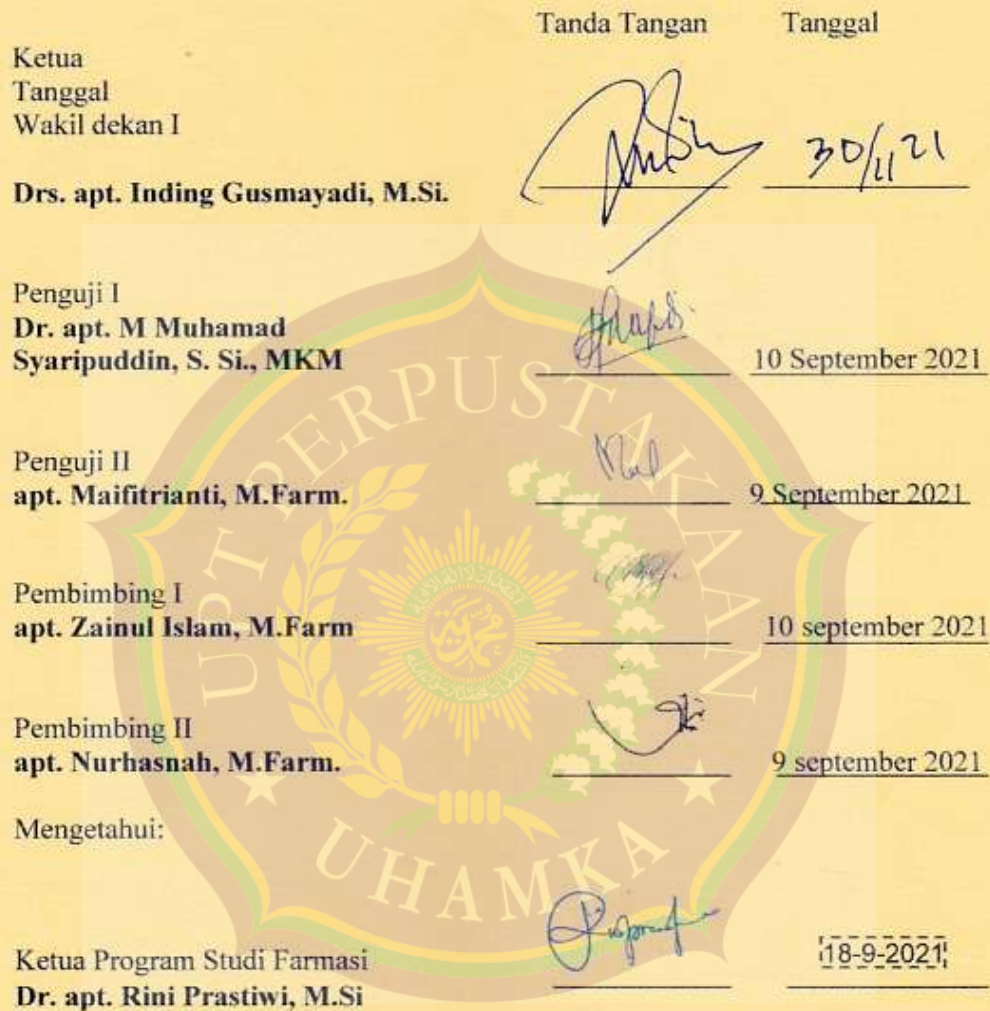 Tanda Tangan Tanggal
Ketua
Tanggal
Wakil dekan I
30/11 21
Drs. apt. Inding Gusmayadi, M.Si.
Penguji I
Dr. apt. M Muhamad
Syaripuddin, S. Si., MKM 10 September 2021
Penguji II
apt. Maifitrianti, M.Farm. 9 September 2021
Pembimbing I
apt. Zainul Islam, M.Farm 10 september 2021
Pembimbing II
apt. Nurhasnah, M.Farm. 9 september 2021
Mengetahui:
Ketua Program Studi Farmasi 18-9-2021
Dr. apt. Rini Prastiwi, M.Si
UPT PERPUSTAKAAN
UHAMKA